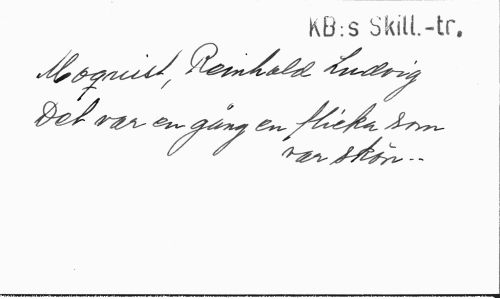 KB:s Skill.-tr.
Moquist, Reinhold Ludvig
Det var en gång en flicka som
var skön..